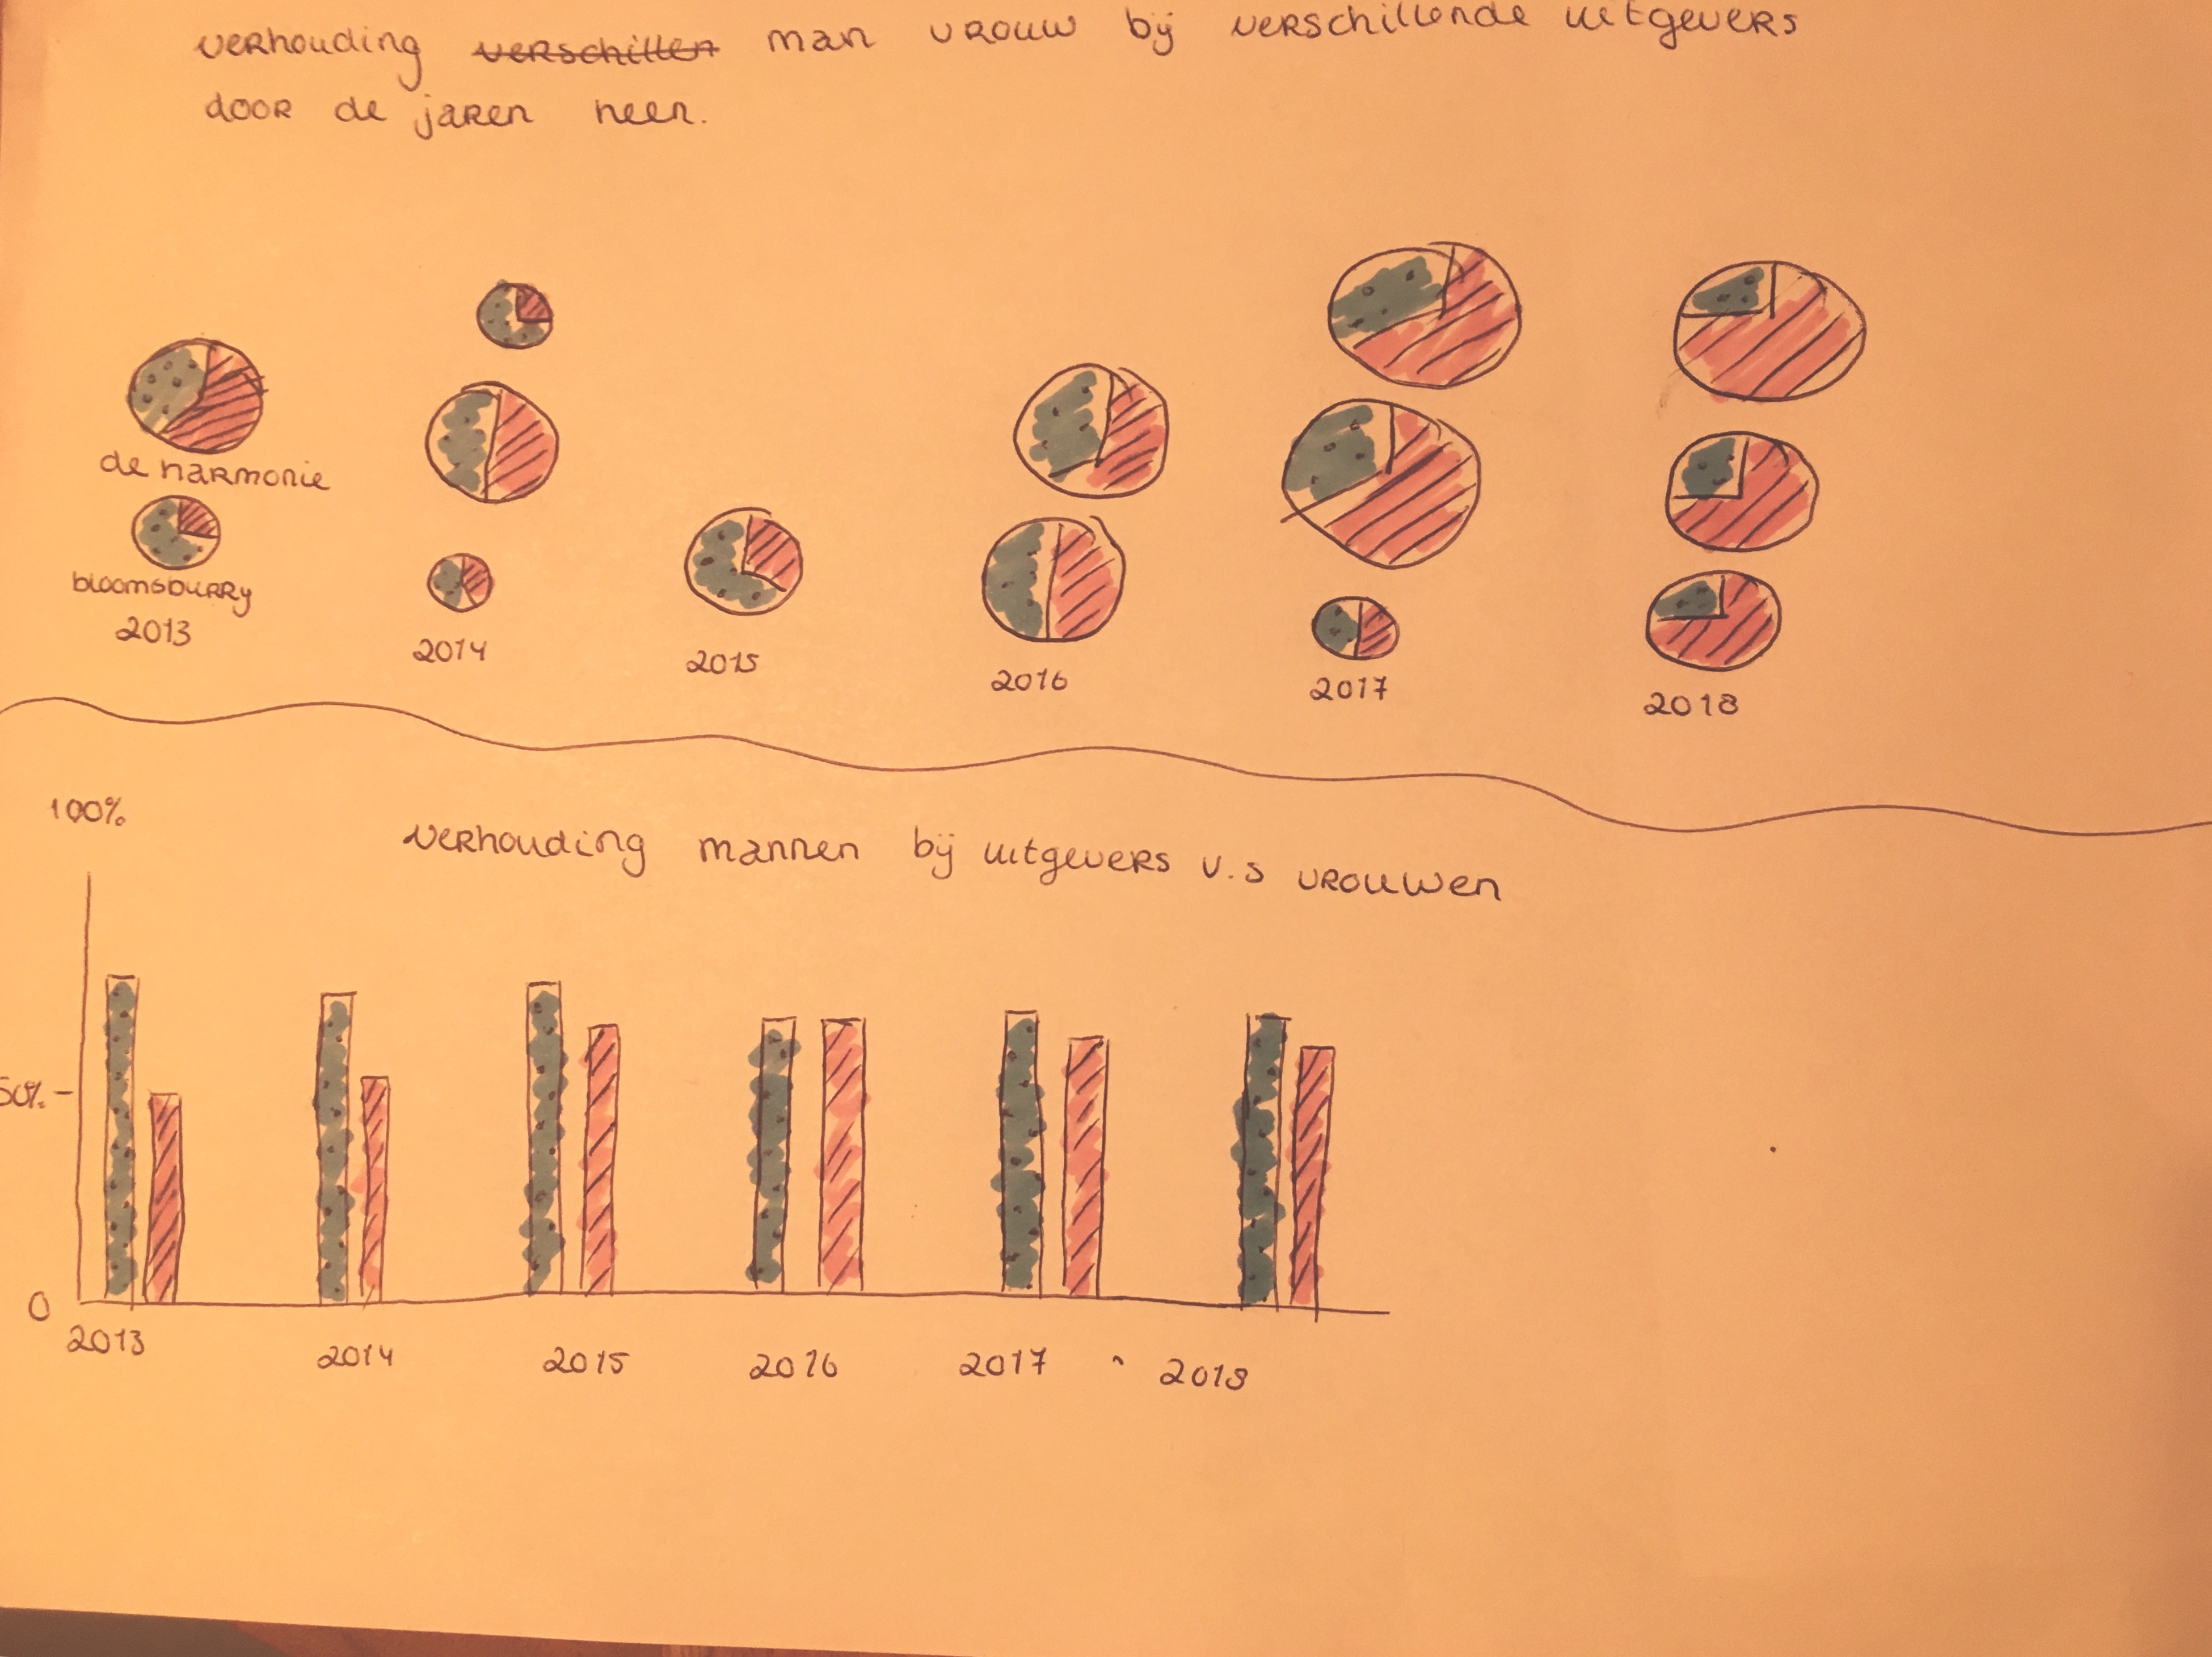 verhouding verschillen man vrouw bij verschillende uitgevers
door de jaren heen.
de harmonie
bloomsburry
2013
2014
2015
2016
2017
2018
100%
verhouding mannen bij uitgevers v.s vrouwen
50%
0
2013
2014
2015
2016
2017
2018